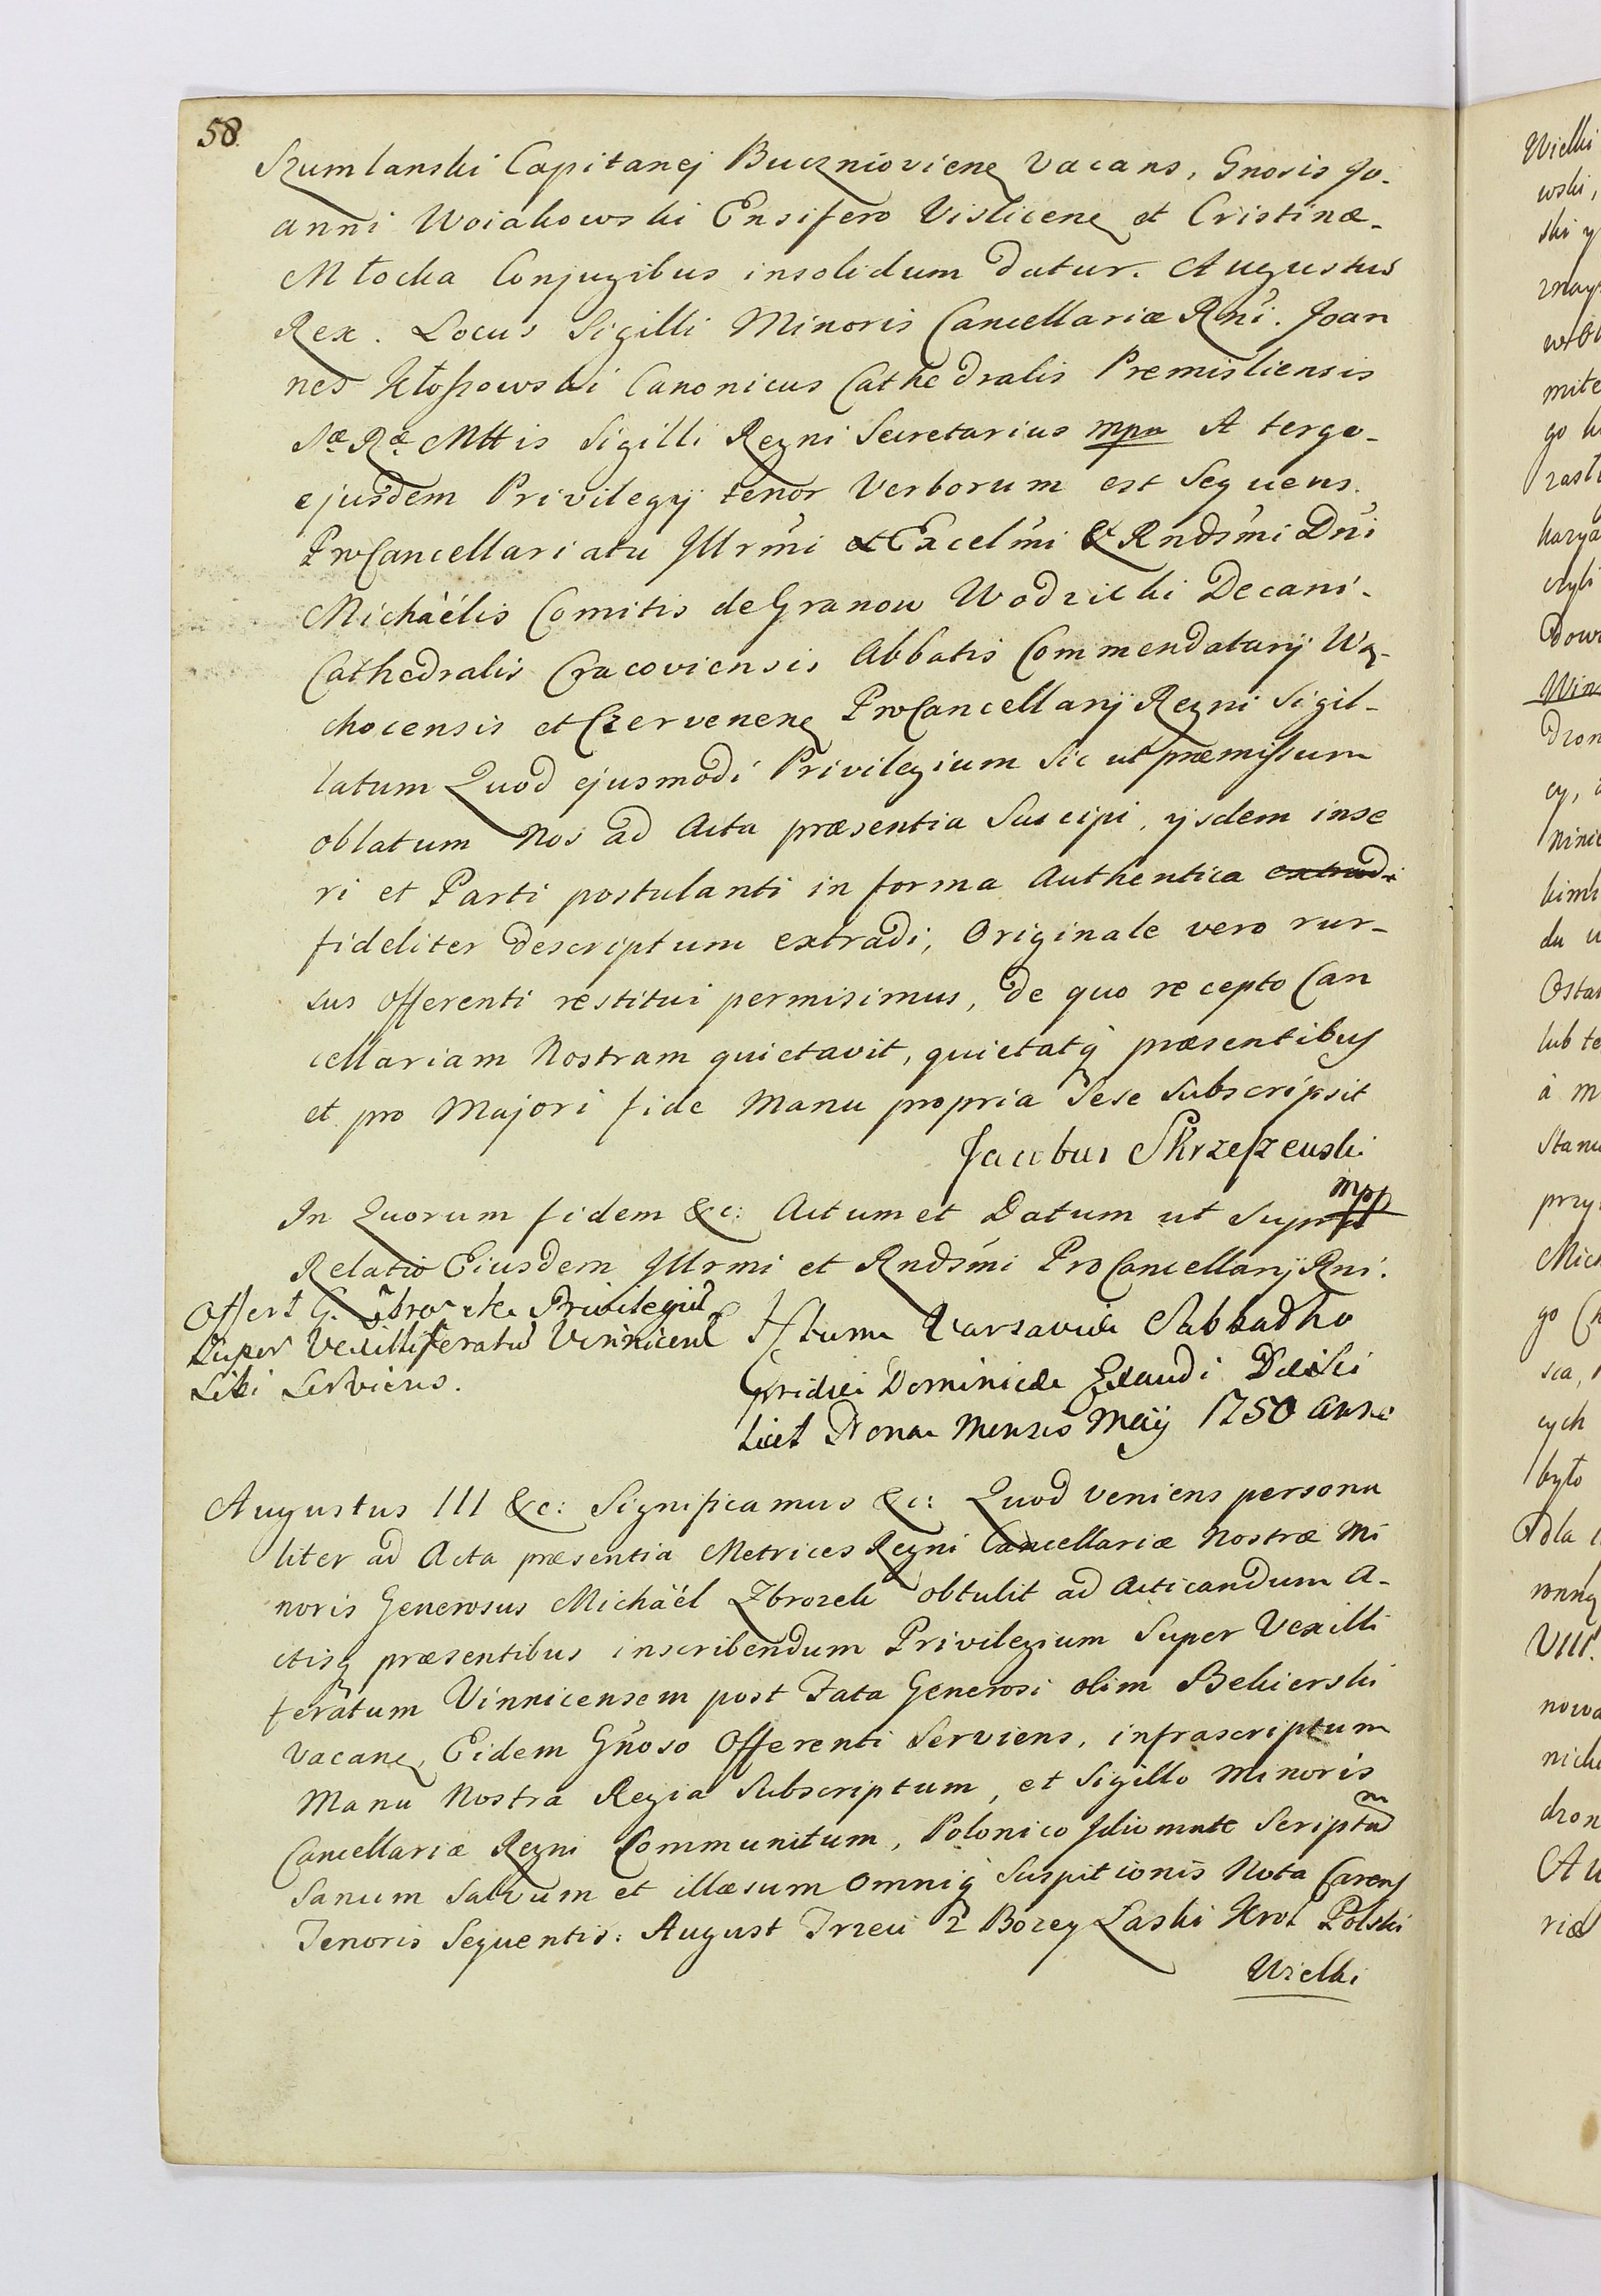 58.
Szumlanski Capitanej Bucznioviene vacans, Gnosis Jo-
anni Woiakowski Ensifero Visliceneȝ et Cristinæ
Młocka Conjugibus insolidum datur. Augustus
Rex. Locus Sigilli Minoris Cancellariæ Rni. Joan
nes Kłoszowski Canonicus Cathedralis Premisliensis
Sæ Ræ Mttis Sigilli Regni Secretarius mpa A tergo
ejusdem Privilegij tenor Verborum est Sequens.
ProCancellariatu Illrmi et Excelmi & Rndsmi Dni
Michaëlis Comitis de Granow Wodzicki Decani
Cathedralis Cracoviensis Abbatis Commendatarij Wą-
chocensis et Czerveneneȝ ProCancellarij Regni Sigil-
latum Quod ejusmodi Privilegium Sic ut præmissum
oblatum Nos ad Acta præsentia Suscipi, ijsdem inse
ri et Parti postulanti in forma Authentica extradi
fideliter descriptum extradi, Originale vero rur-
sus offerenti restitui permisimus, de quo recepto Can
cellariam Nostram quietavit, quietatq præsentibus
et pro Majori fide Manu propria Sese Subscripsit
Jacobus Skrzeszewski
mpp
In Quorum fidem &c: Actum et Datum ut Supra
Relatio Eiusdem Illrmi et Rndsmi ProCancellarij Rni.
Offert G. Zbrozek Privilegiu
Super Vexilliferatu Vinnicens
Sibi Serviens.
Actum Varsaviæ Sabbatho
pridie Dominicæ Exaudi Die Sci
licet Nona Mensis Maij 1750 Anno
Augustus III &c: Significamus &c: Quod veniens persona
liter ad Acta præsentia Metrices Regni Cancellariæ Nostræ Mi
noris Generosus Michaël Zbrozek obtulit ad Acticandum A-
ctisq præsentibus inscribendum Privilegium Super Vexilli
feratum Vinnicensem post Fata Generosi olim Bekierski
vacaneȝ, Eidem Gnoso Offerenti Serviens, infrascriptum
Manu Nostra Regia Subscriptum, et Sigillo Minoris
Cancellariæ Regni Communitum, Polonico Idiomate Scriptum
Sanum Salvum et illæsum omniq Suspitionis Nota Carens
Tenoris Sequentis: August Trzeci z Bozey Łaski Krol Polski
Wielki